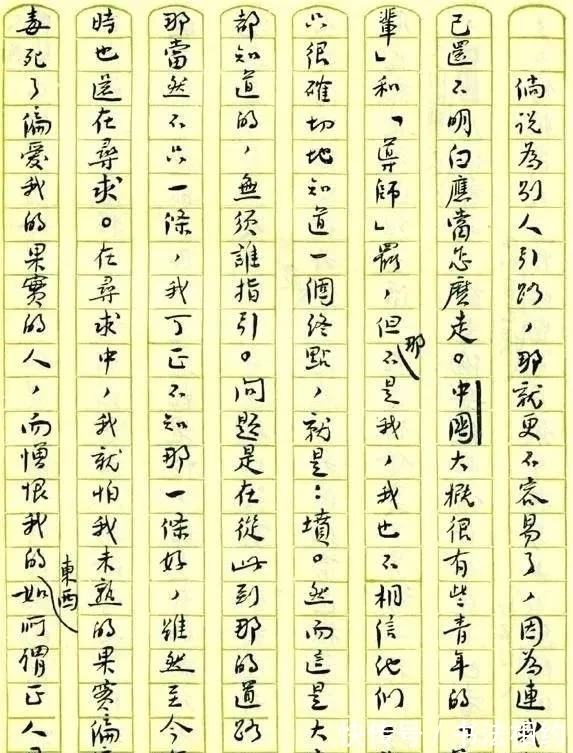 倘说為别人引路,那就更不容易了,因為連
己還不明白應當怎麽走。中國大概很有些青年的
輩」和「導師」罷,但那不是我,我也不相信他們
只很確切地知道一個終點,就是:墳。然而這是大
都知道的,無須誰指引。問題是在從此到那的道路
那當然不只一條,我可正不知那一條好,雖然至今
時也還在尋求。在尋求中,我就怕我未熟的果實偏
毒死了偏愛我的果實的人,而憎恨我的東西如所谓正人